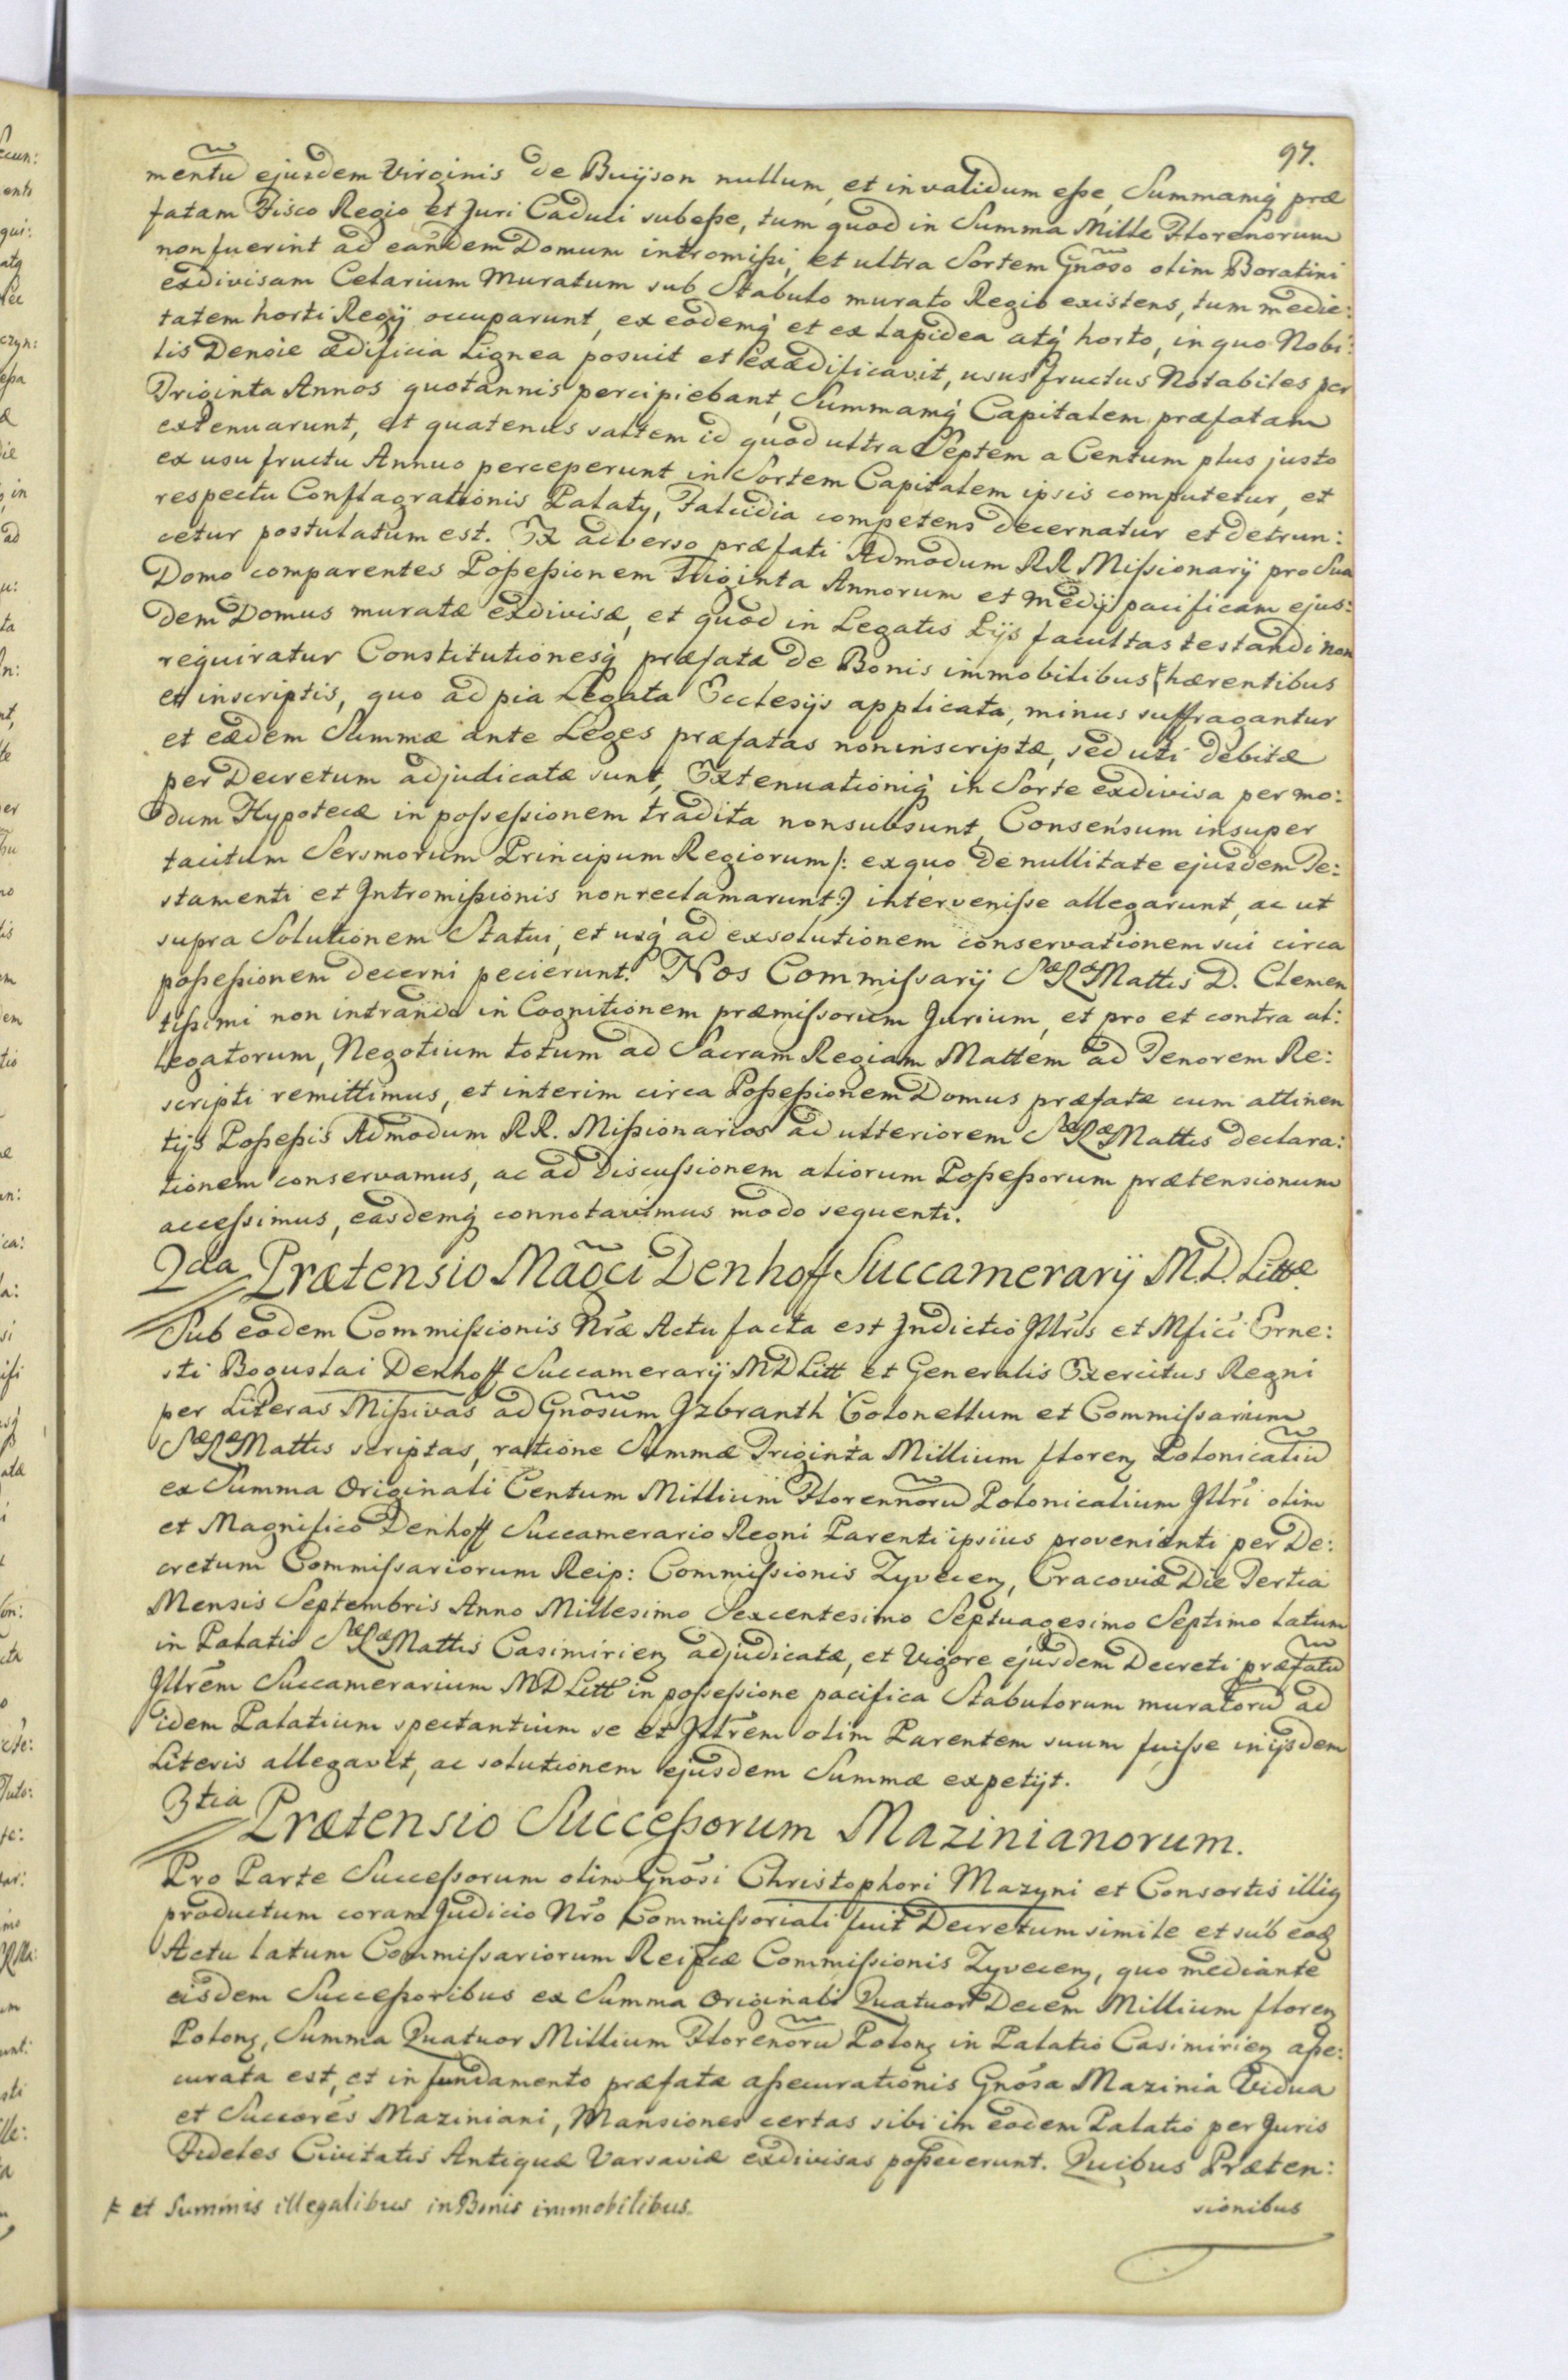 97.
mentũ ejusdem Virginis de Buÿson nullum, et invalidum eße, Summamq́ præ
fatam Fisco Regio et Juri Caduci subeße, tum quod in Summa Mille Florenorum
non fuerint ad eandem Domum intromißi, et ultra Sortem Gnõso olim Boratini
exdivisam Celarium Muratum sub Stabulo murato Regio existens, tum medie:
tatem horti Regÿ occuparunt, ex eodemq́ et ex lapidea atq́ horto, in quo Nobi:
lis Dengie ædificia Lignea posuit et exædificavit, usus fructus Notabiles per
Triginta Annos quotannis percipiebant, Summamq́ Capitalem præfatam
extenuarunt, et quatenus saltem id quod ultra Septem a Centum plus justo
ex usu fructu Annuo perceperunt in Sortem Capitalem ipsis computetur, et
respectu Conflagrationis Palatÿ, Falcidia competens decernatur et detrun:
cetur postulatum est. Ex adverso præfati Admodum RR Mißionarÿ pro Sua
Domo comparentes Poßeßionem Triginta Annorum et medÿ pacificam ejus:
dem Domus muratæ exdivisæ, et quod in Legatis Pÿs facultas testandi non
requiratur Constitutionesq́ præfatæ de Bonis immobilibus hærentibus
et inscriptis, quo ad pia Legata Ecclesÿs applicata, minus suffragantur
et eædem Summæ ante Leges præfatas non inscriptæ, sed uti debitæ
per Decretum adjudicatæ sunt, Extenuationiq́ in Sorte exdivisa per mo:
dum Hypotecæ in poſseßionem tradita non subsunt, Consensum insuper
tacitum Sersmorum Principum Regiorum /: ex quo de nullitate ejusdem Te:
stamenti et Intromißionis non reclamarunt :/ interveniſse allegarunt, ac ut
supra Solutionem Statui, et usq́ ad exsolutionem conservationem sui circa
poßeßionem decerni pecierunt. Nos Commiſsarÿ SæRæMattis D. Clemen
tißimi non intrando in Cognitionem præmiſsorum Jurium, et pro et contra al:
legatorum, Negotium totum ad Sacram Regiam Mattem ad Tenorem Re:
scripti remittimus, et interim circa Poßeßionem Domus præfatæ cum attinen
tÿs Poßeßis Admodum RR. Mißionarios ad ulteriorem SæRæMattis declara:
tionem conservamus, ac ad discuſsionem aliorum Poßeßorum prætensionum
acceſsimus, easdemq́ connotavimus modo sequenti.
2da Prætensio Mag̃ci Denhoff Succamerarÿ M.D. Littæ
Sub eodem Commißionis Nræ Actu facta est Indictio Illris et Mfici Erne:
sti Boguslai Denhoff Succamerarÿ MDLitt et Generalis Exercitus Regni
per Literas Mißivas ad Gnõsum Izbranth Colonellum et Commiſsarium
SæRæMattis scriptas, ratione Summæ Triginta Millium floren Polonicaliũ
ex Summa Originali Centum Millium Florennorũ Polonicalium Illri olim
et Magnifico Denhoff Succamerario Regni Parenti ipsius provenienti per De:
cretum Commiſsariorum Reip: Commiſsionis Zyvecen, Cracoviæ Die Tertia
Mensis Septembris Anno Millesimo Sexcentesimo Septuagesimo Septimo latum
in Palatio SæRæMattis Casimirien adjudicatæ, et Vigore ejusdem Decreti præfatũ
Illrem Succamerarium MDLitt in poſseſsione pacifica Stabulorum muratorũ ad
idem Palatium spectantium se et Illrem olim Parentem suum fuiſse in ÿsdem
Literis allegavit, ac solutionem ejusdem Summæ expetÿt.
3tia Prætensio Succeßorum Mazinianorum.
Pro Parte Succeßorum olim Gnosi Christophori Mazyni et Consortis illiq
productum coram Judicio Nro Commiſsoriali fuit Decretum simile et sub eoq
Actu latum Commiſsariorum Reipcæ Commiſsionis Zyvecen, quo mediante
eisdem Succeßoribus ex Summa Originali Quatuor Decem Millium floren
Polon, Summa Quatuor Millium Florenorũ Polon in Palatio Casimirien aße:
curata est, et in fundamento præfatæ aßecurationis Gnosa Mazinia Vidua
et Succores Maziniani, Mansiones certas sibi in eodem Palatio per Juris
Fideles Civitatis Antiquæ Varsaviæ exdivisas poßederunt. Quibus Præten:
sionibus
et Summis illegalibus in Bonis immobilibus